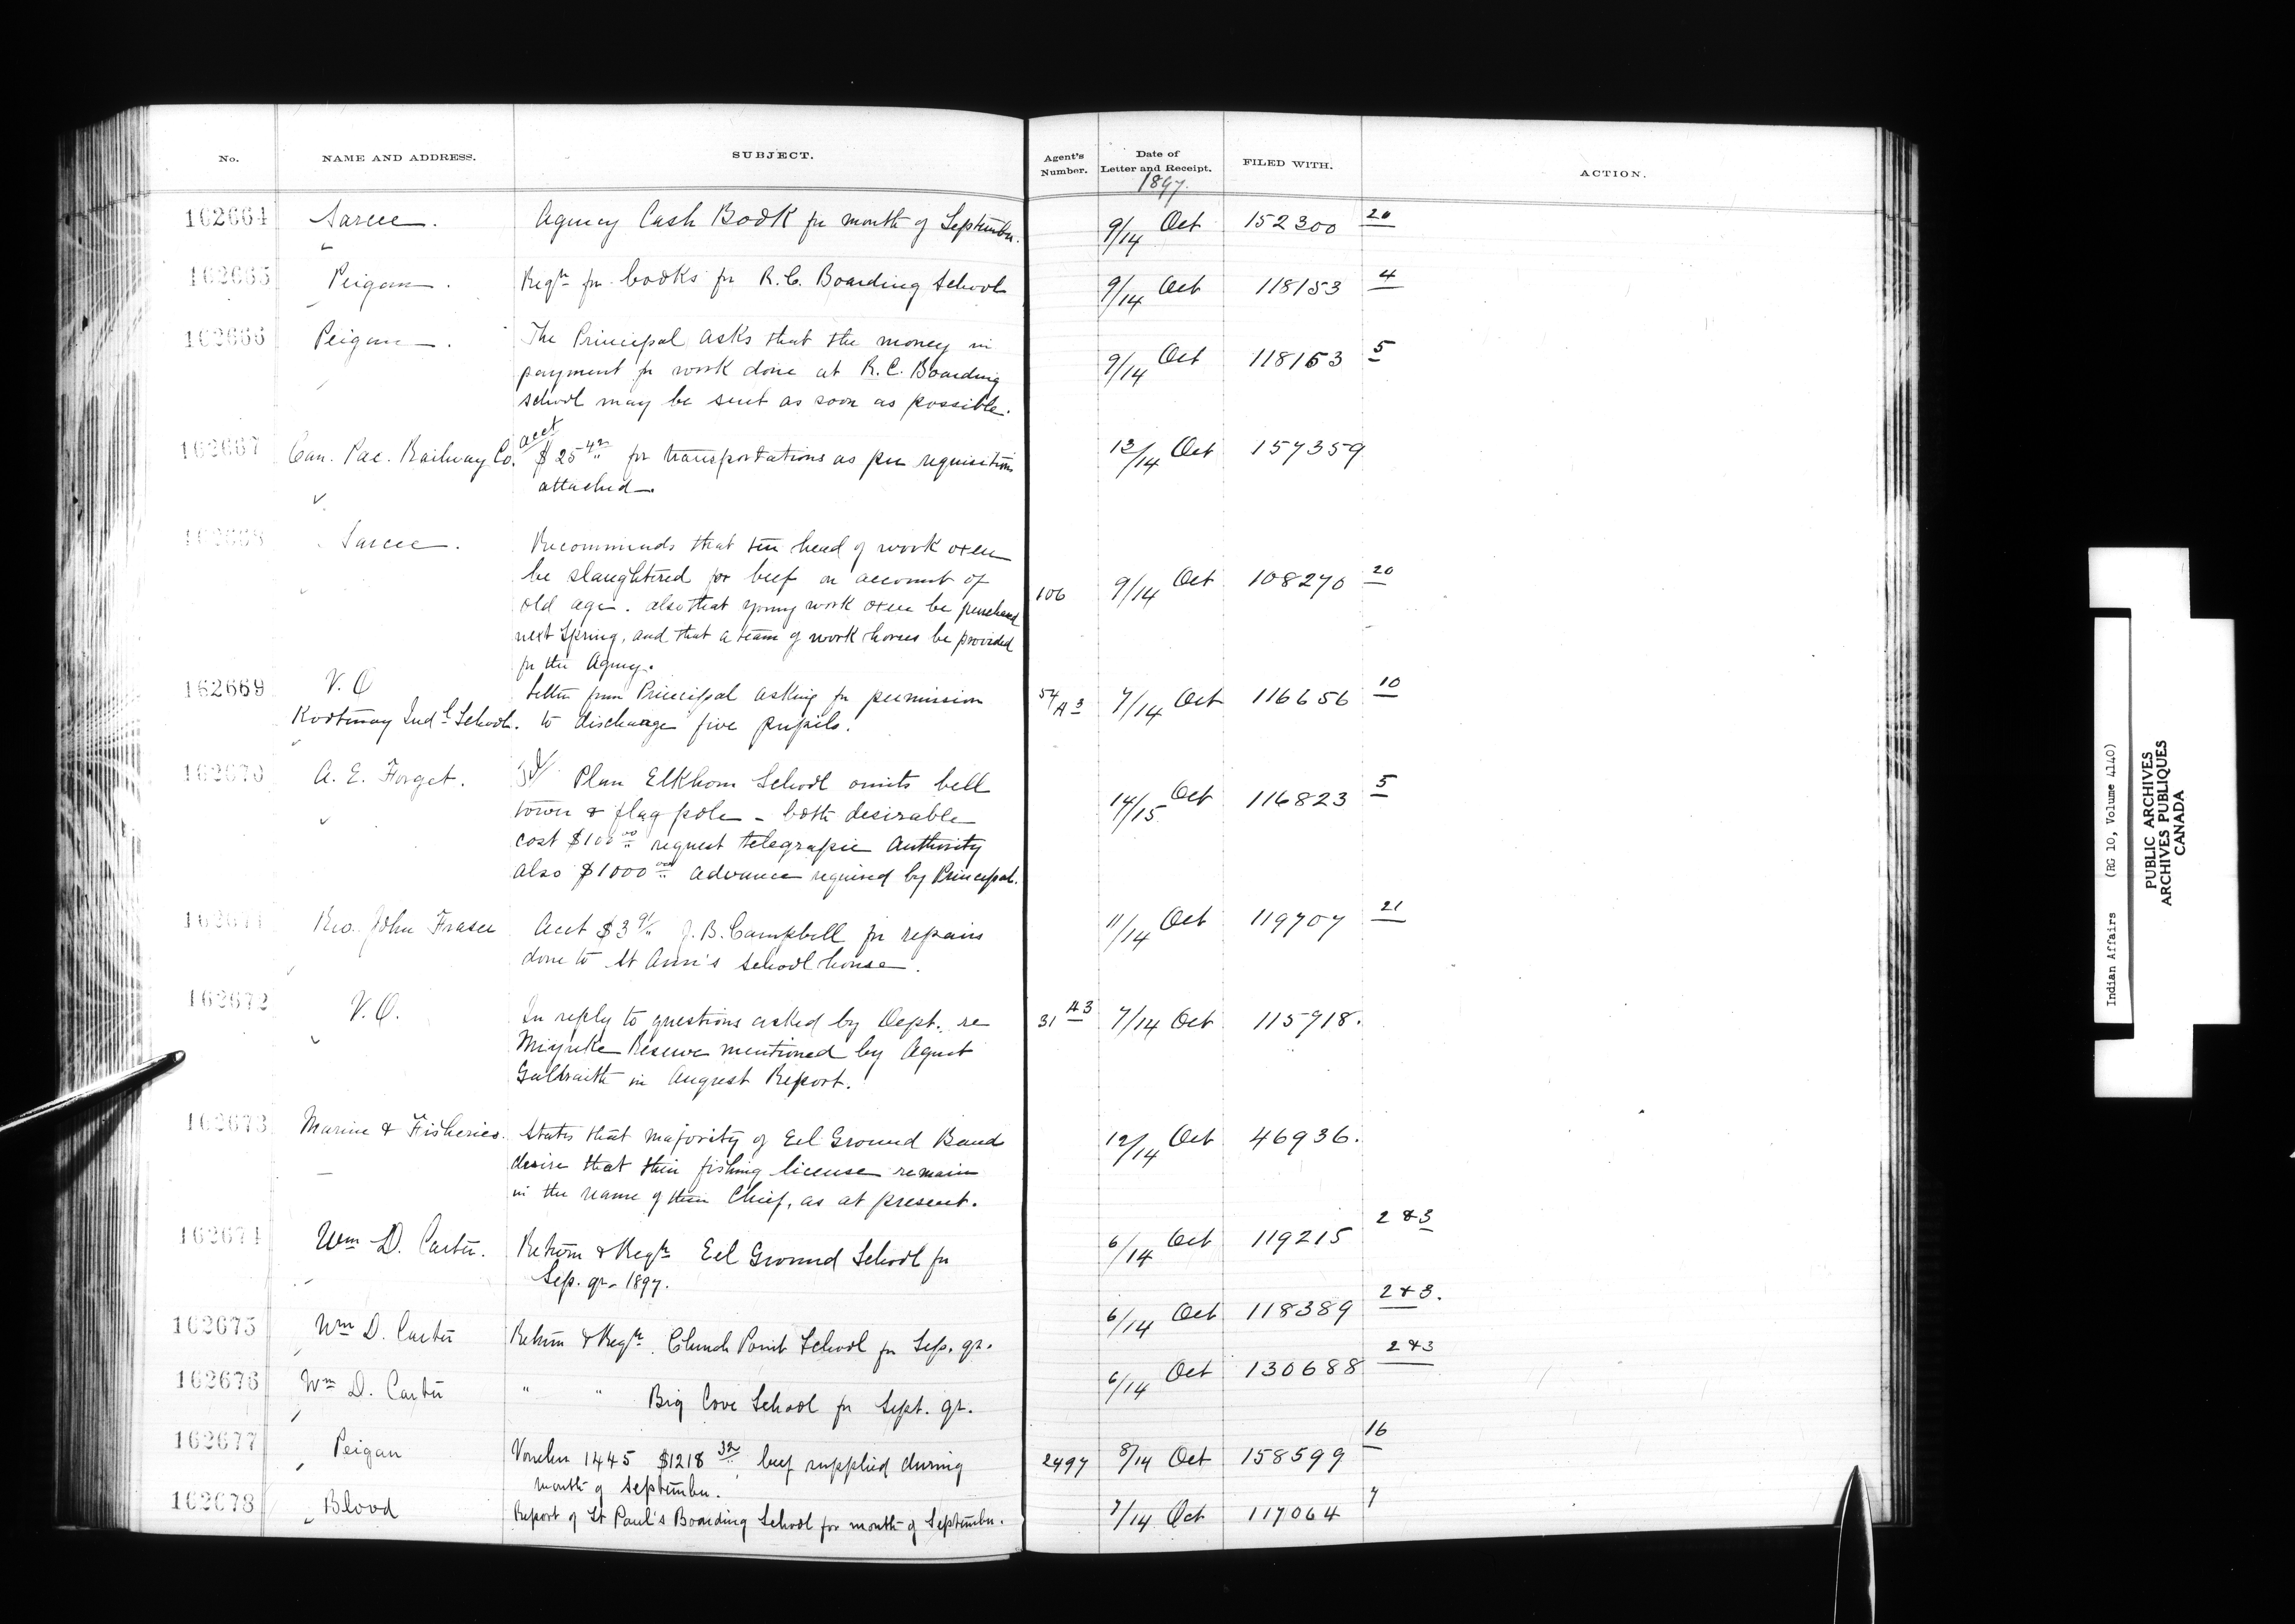 No. NAME AND ADDRESS. SUBJECT. Agent's Number. Date of Letter and Receipt. FILED WITH. ACTION.
1897.
162664 Sarcee. Agency Cash Book for month of September. 9/14 Oct 152300 20
162665 Peigan. Reqn for books for R.C. Boarding School 9/14 Oct 118153 4
162666 Peigan. The Principal asks that the money in
payment for work done at R.C. Boarding 9/14 Oct 118153 5
school may be sent as soon as possible.
162667 Can. Pac. Railway Co. Acct $25 42 for transportations as per requisitions 12/14 Oct 157359
attached.
162668 Sarcee. Recommends that ten head of work oxen
be slaughtered for beef on account of 106 9/14 Oct 108270 20
old age. also that young work oxen be purchased
next Spring, and that a team of work horses be provided
for the Agency.
162669 V.O Letter from Principal asking for permission 54/A3 7/14 Oct 116656 10
Kootenay Indl School. to discharge five pupils.
162670 A. E. Forget. Plan Elkhorn School omits bell
tower & flag pole - both desirable 14/15 Oct 116823 5
cost $100 00 request telegrapic authority
also $1000 00 advance required by Principal.
162671 Rev. John Fraser Acct $3 91 J.B. Campbell for repairs 11/14 Oct 119707 21
done to St Ann's school house.
162672 V.O. In reply to questions asked by Dept. re 31 A3 7/14 Oct 115918.
Reserve mentioned by Agent
Galbraith in August Report.
162673 Marine & Fisheries. States that majority of Eel Ground Band 12/14 Oct 46936.
desire that their fishing license remain
in the name of their Chief, as at present.
162674 Wm D. Carter. Return & Reqn Eel Ground School for 6/14 Oct 119215 2 & 3
Sep. qr. 1897.
162675 Wm D. Carter Return & Reqn. Church Point School for Sep. qr. 6/14 Oct 118389 2 & 3.
162676 Wm D. Carter " " Big Cove School for Sept. qr. 6/14 Oct 130688 2 & 3
162677 Peigan Voucher 1445 $1218 32 beef supplied during 2497 8/14 Oct 158599 16
month of September.
162678 Blood Report of St Paul's Boarding School for month of September. 7/14 Oct 117064 7
Indian Affairs (RG 10, Volume 4140)
PUBLIC ARCHIVES
ARCHIVES PUBLIQUES
CANADA